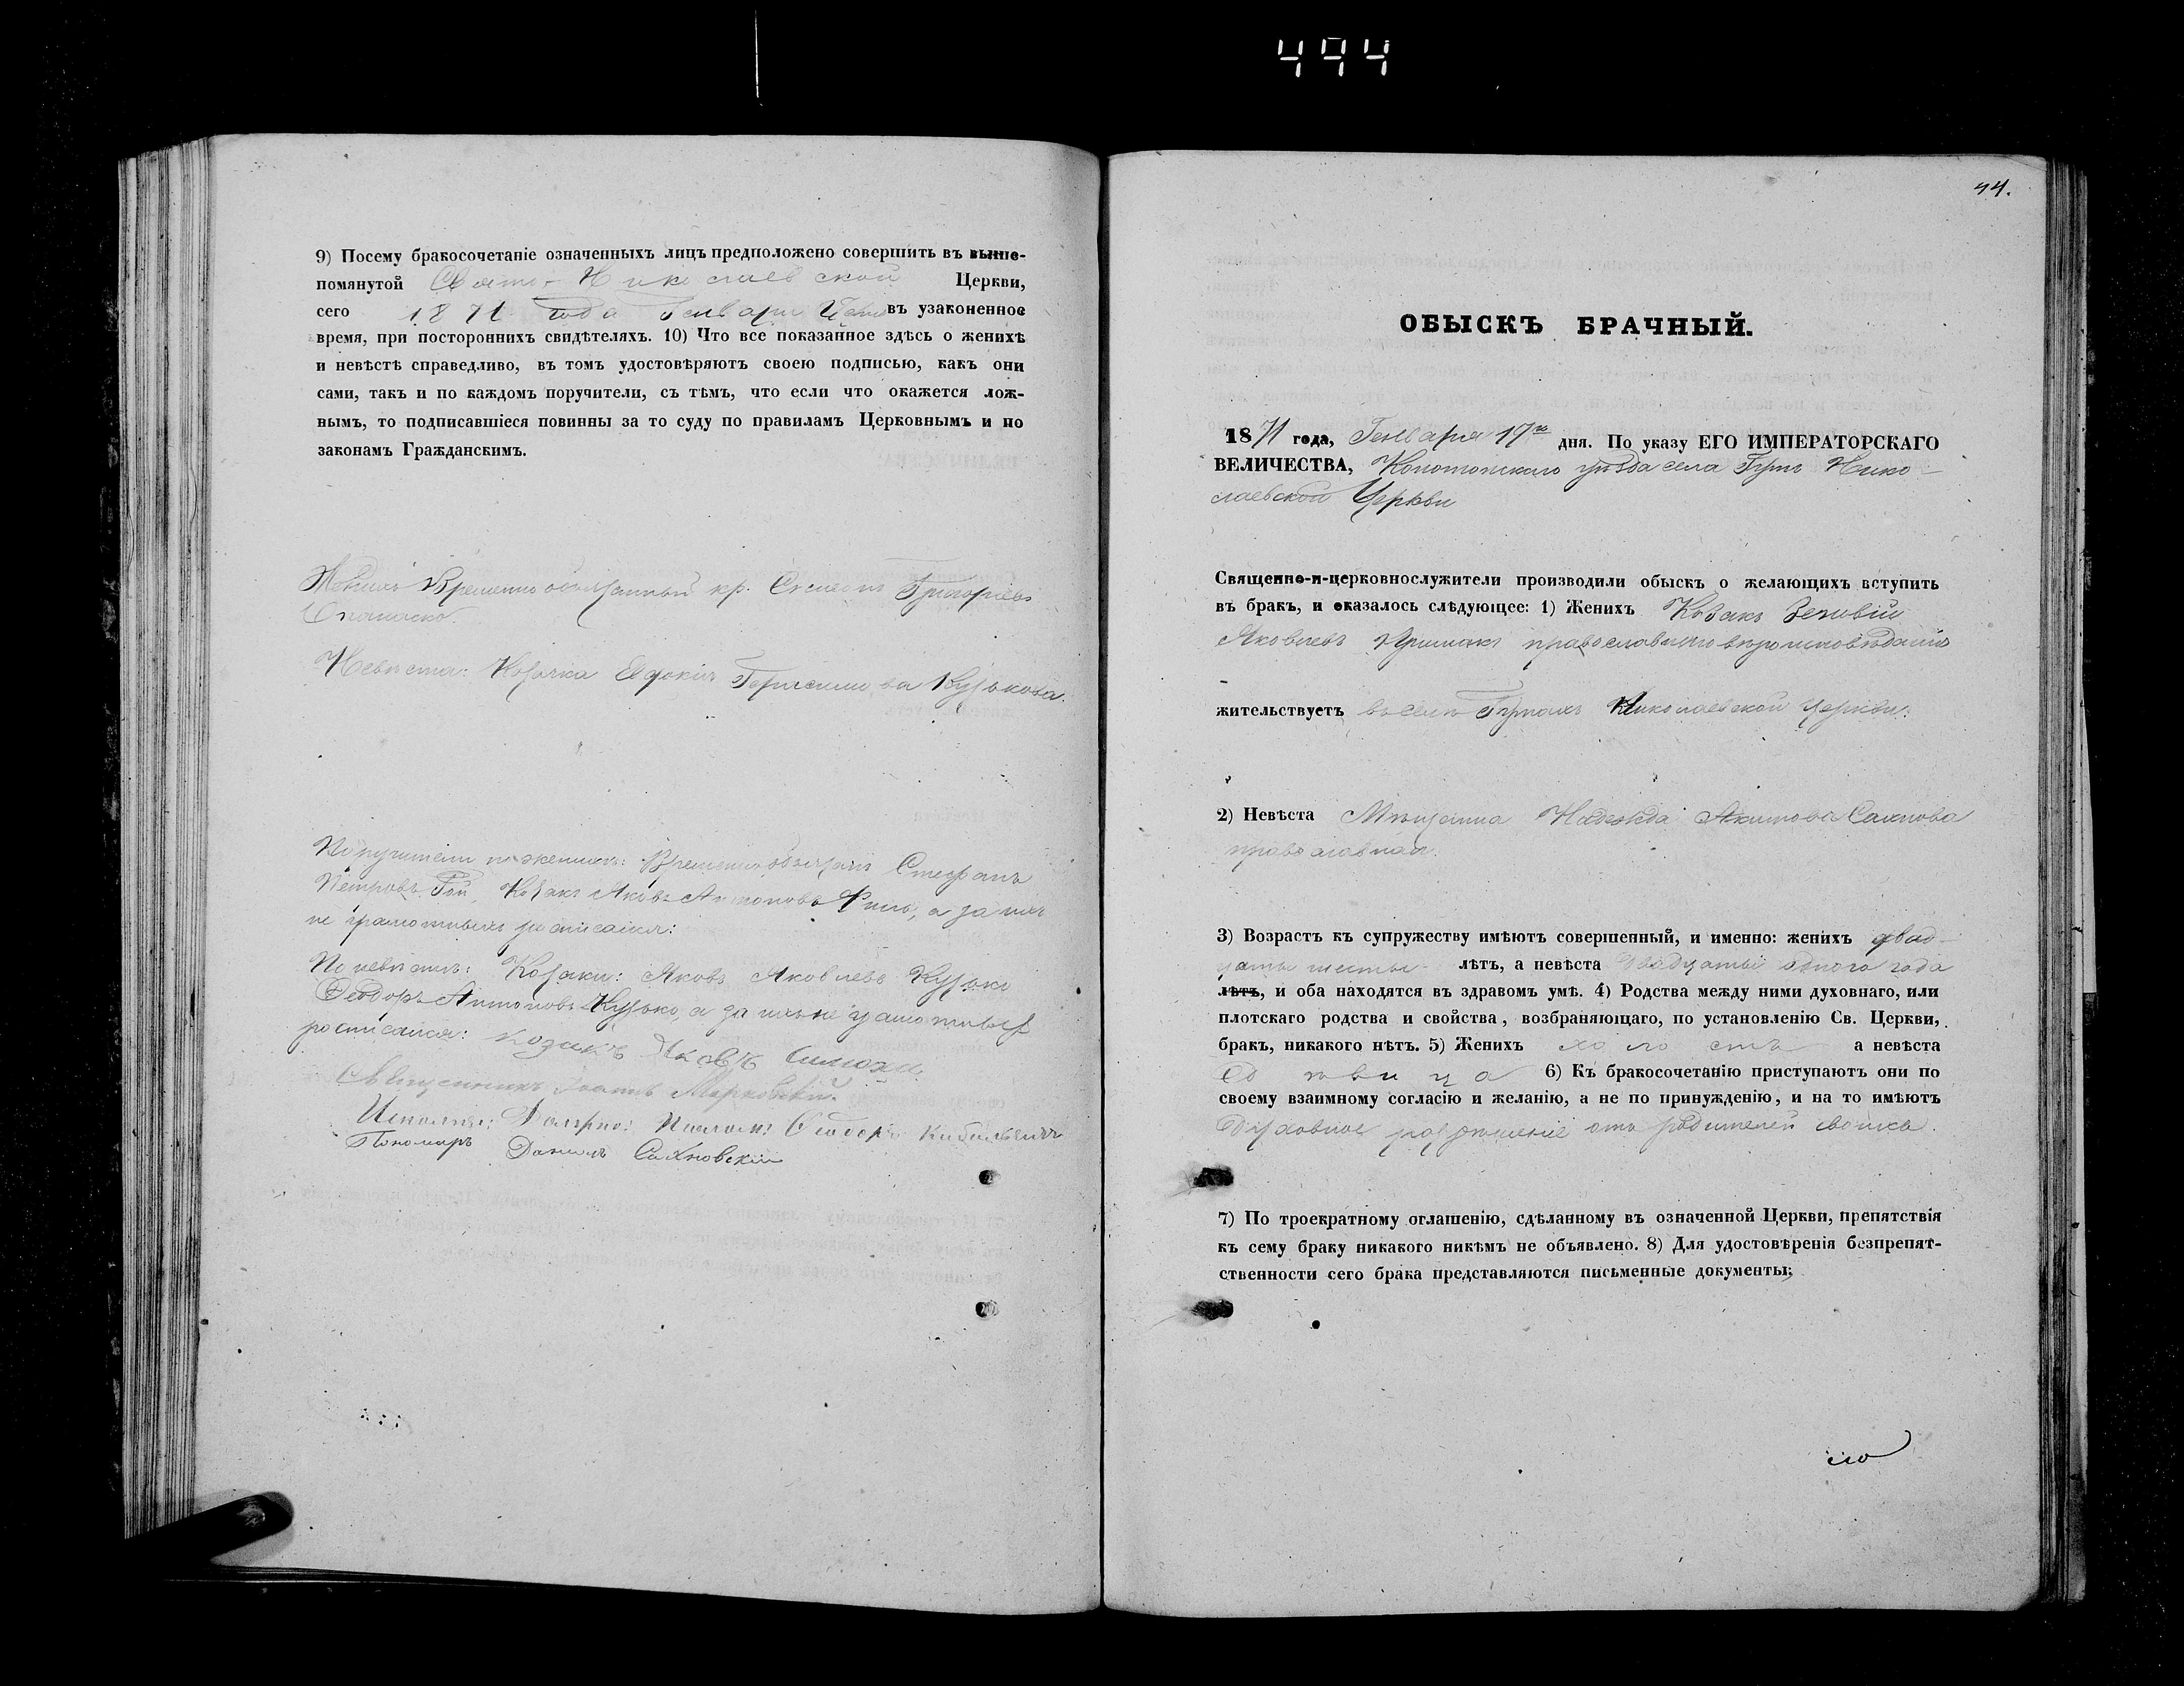 444
9) Посему бракосочетаніе означенныхъ лицъ предположено совершить въ выше-
помянутой Свято-Николаевской Церкви,
сего 1871 года Генваря въ узаконенное
время, при постороннихъ свидѣтеляхъ. 10) Что все показанное здѣсь о женихѣ
и невѣстѣ справедливо, въ томъ удостовѣряютъ своею подписью, какъ они
сами, такъ и по каждомъ поручители, съ тѣмъ, что если что окажется лож-
нымъ, то подписавшіеся повинны за то суду по правиламъ Церковнымъ и по
законамъ Гражданскимъ.
Женихъ Временно обязанный кр. Григоріевъ
Невѣста: Козачка Герасимова Кузькова.
Поручители по женихѣ: Временно Стефанъ
Петровъ Гой, Козакъ Яковъ Антоновъ а за нихъ
не грамотныхъ росписался:
По невѣстѣ: Козаки: Яковъ Яковлевъ Кузько
Ѳеодоръ Антоновъ Кузько, а за нихъ не грамотныхъ
росписался: козакъ Яковъ
Священникъ Іоаннъ Марковскій.
Псалом:
Пономарь Даніилъ Сахновскій
44.
ОБЫСКЪ БРАЧНЫЙ.
1871 года, Генваря 17го дня. По указу ЕГО ИМПЕРАТОРСКАГО
ВЕЛИЧЕСТВА, Конотопскаго уѣзда села Нико-
лаевской Церкви
Священно-и-церковнослужители производили обыскъ о желающихъ вступить
въ бракъ, и оказалось слѣдующее: 1) Женихъ Козакъ Зеновій
Яковлевъ православнаго вѣроисповѣданія
жительствуетъ въ селѣ Николаевской церкви.
2) Невѣста Мѣщанка Надежда Акимова Сахнова
православная.
3) Возрастъ къ супружеству имѣютъ совершенный, и именно: женихъ двад-
цати шести лѣтъ, а невѣста двадцати одного года
лѣтъ, и оба находятся въ здравомъ умѣ. 4) Родства между ними духовнаго, или
плотскаго родства и свойства, возбраняющаго, по установленію Св. Церкви,
бракъ, никакого нѣтъ. 5) Женихъ холостъ а невѣста
дѣвица 6) Къ бракосочетанію приступаютъ они по
своему взаимному согласію и желанію, а не по принужденію, и на то имѣютъ
разрѣшеніе отъ родителей своихъ.
7) По троекратному оглашенію, сдѣланному въ означенной Церкви, препятствія
къ сему браку никакого никѣмъ не объявлено. 8) Для удостовѣренія безпрепят-
ственности сего брака представляются письменные документы;